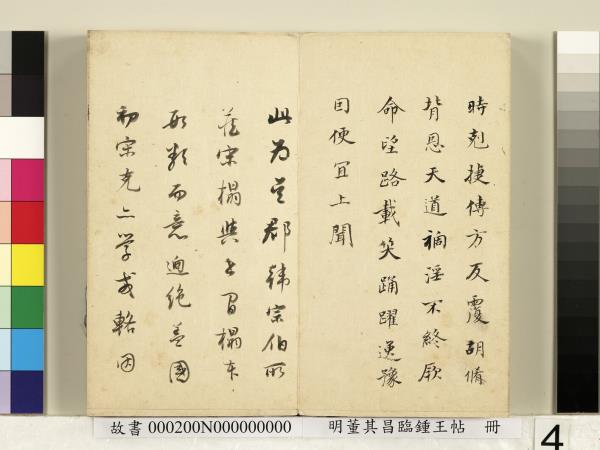 時剋捷傅方反覆胡脩
背恩天道禍淫不終厥
命望路載笑踊躍逸豫
因便宜上聞
此為吾郡韓宗伯所
藏宋榻與世間榻本
形類而意迥絕蓋國
初宋克二學或輅因
故書 000200N000000000 明董其昌臨鍾王帖 冊
4